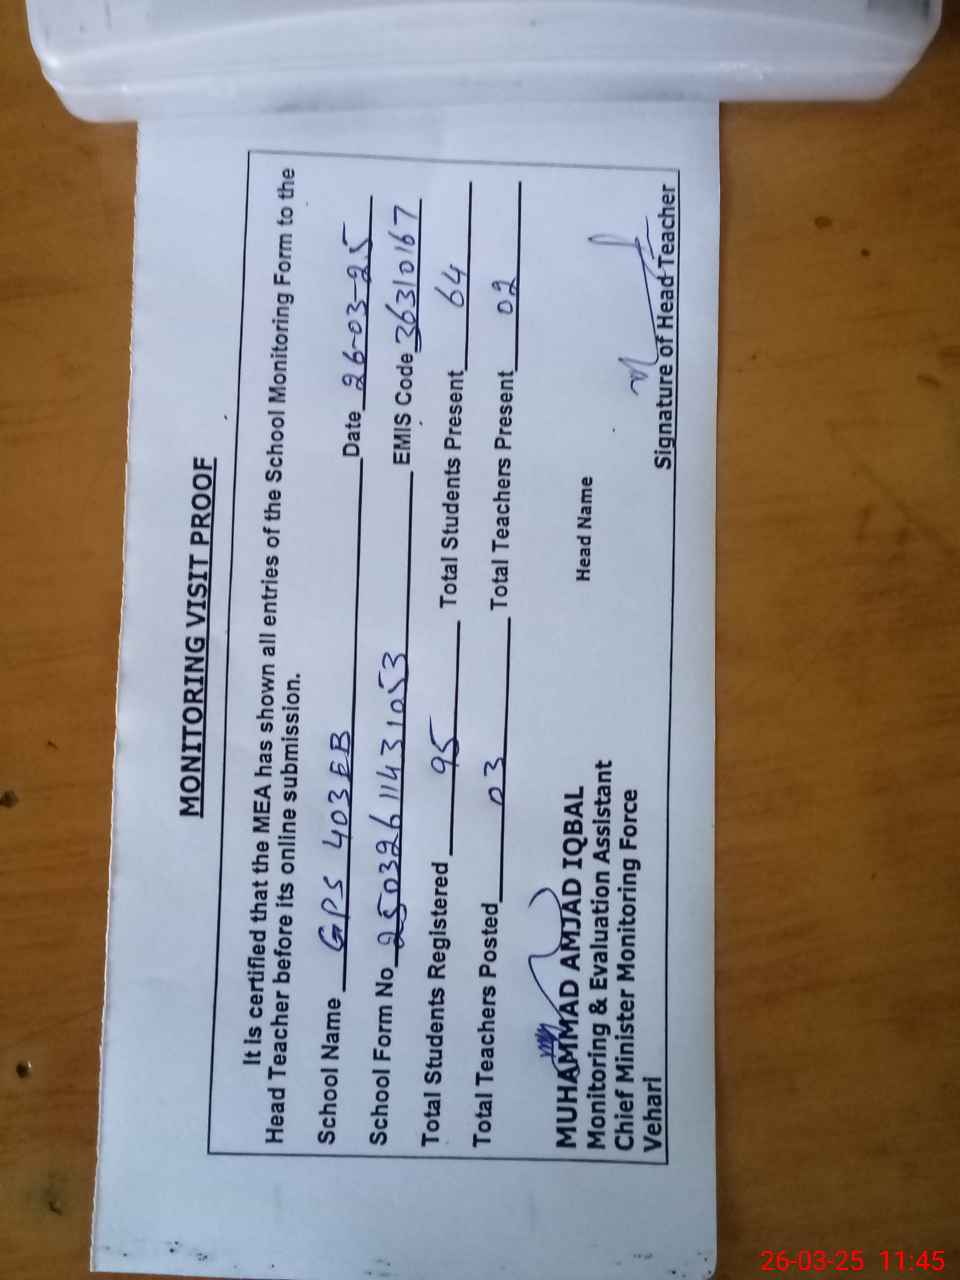 MONITORING VISIT PROOF
It is certified that the MEA has shown all entries of the School Monitoring Form to the
Head Teacher before its online submission.
School Name GPS 403 EB Date 26-03-25
School Form No 25032611431053 EMIS Code 36310167
Total Students Registered 95 Total Students Present 64
Total Teachers Posted 03 Total Teachers Present 02
MUHAMMAD AMJAD IQBAL
Monitoring & Evaluation Assistant Head Name
Chief Minister Monitoring Force
Vehari Signature of Head Teacher
26-03-25 11:45